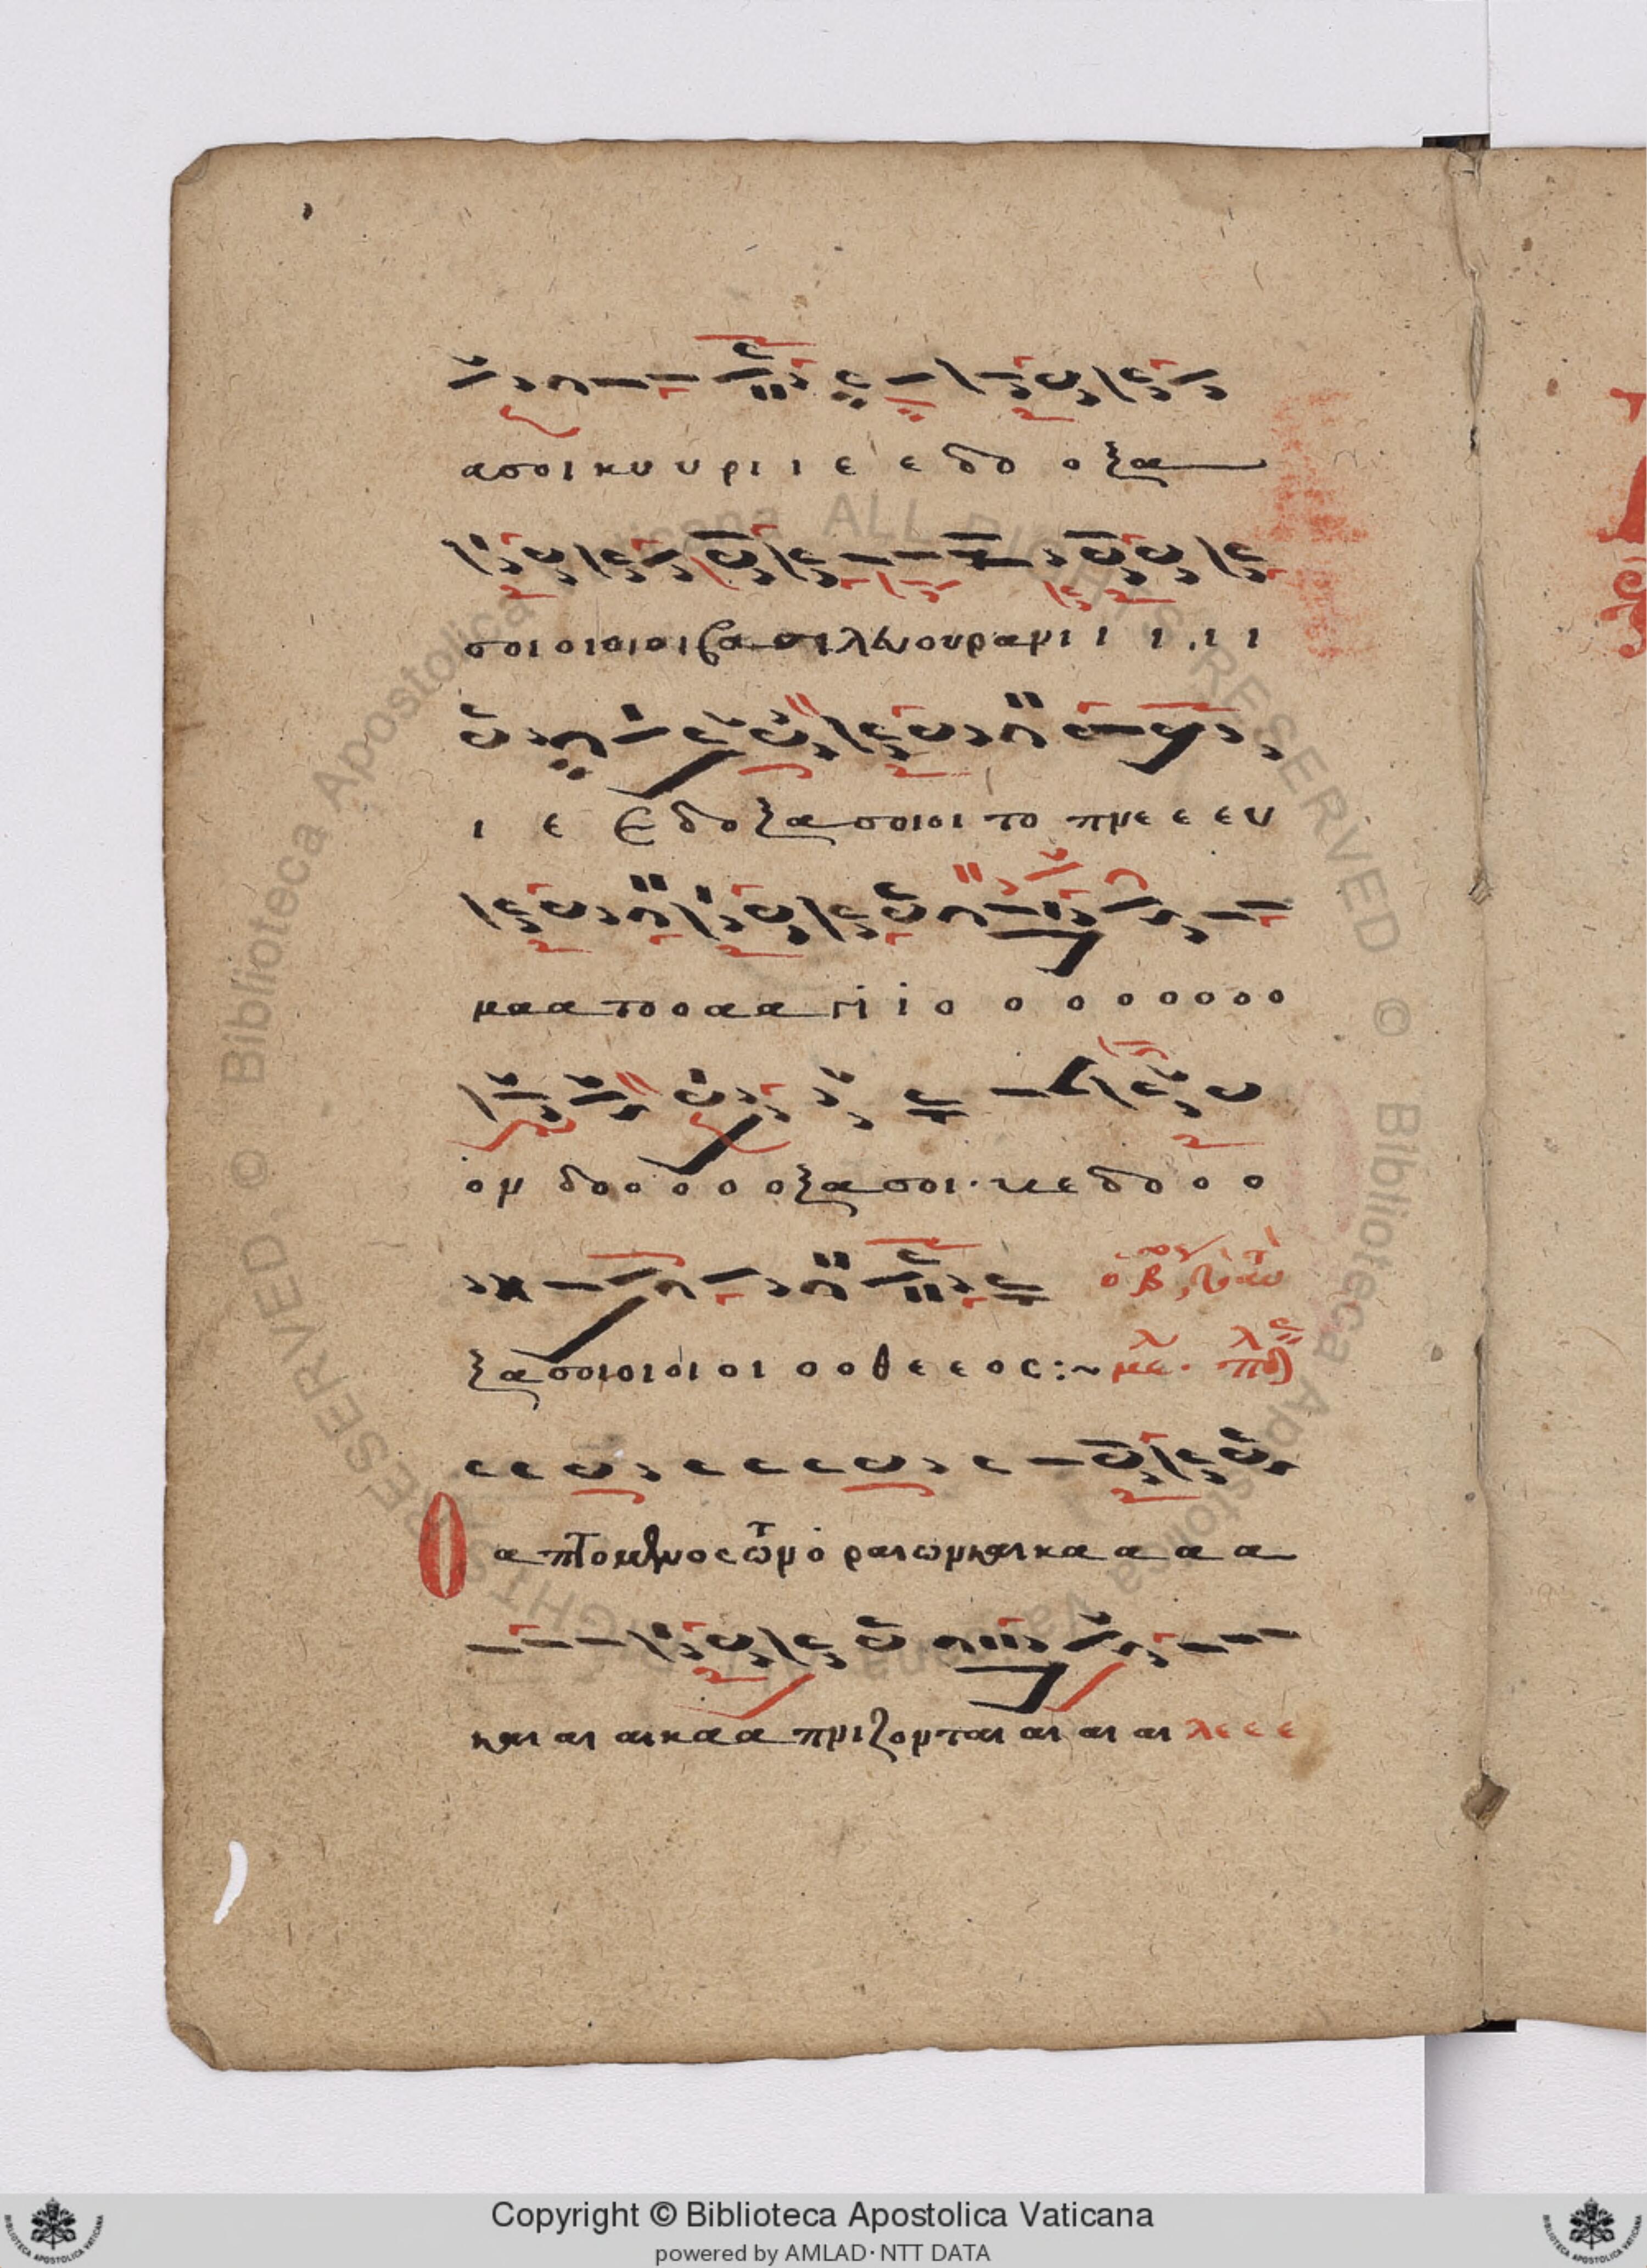 ασοι κυ υ ρι ι ε ε δο ο ξα
σοι οι οι οι βα σιλευ ουρανι ι ι ι ι
ι ε ε δοξασοιοι το πνε ε ευ
μα α το ο α α γι ι ο ο ο ο ο ο ο ο ο
ον δο ο ο ο ο ξα σοι· κε δο ο ο
ξα σοιοιοιοι οι ο ο θε ε ε ος:~
Ο απτομενος των ορ αιων και κα α α α
και αι αι κα α πνιζονται αι αι αι λε ε ε
Copyright © Biblioteca Apostolica Vaticana
powered by AMLAD·NTT DATA